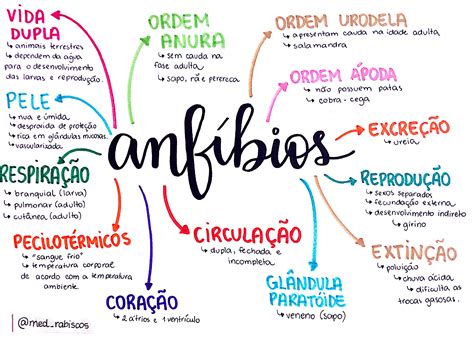 VIDA DUPLA
↳ animais terrestres
↳ dependem da água para o desenvolvimento das larvas e reprodução.
ORDEM ANURA
↳ sem cauda na fase adulta
↳ sapo, rã e perereca
ORDEM URODELA
↳ apresentam cauda na idade adulta
↳ salamandra
ORDEM ÁPODA
↳ não possuem patas
↳ cobra-cega
PELE
↳ nua e úmida
↳ desprovida de proteção
↳ rica em glândulas mucosas.
↳ vascularizada
anfíbios
EXCREÇÃO
↳ ureia
RESPIRAÇÃO
↳ branquial (larva)
↳ pulmonar (adulto)
↳ cutânea (adulto)
REPRODUÇÃO
↳ sexos separados
↳ fecundação externa
↳ desenvolvimento indireto
↳ girino
PECILOTÉRMICOS
↳ "sangue frio"
↳ temperatura corporal de acordo com a temperatura ambiente.
CIRCULAÇÃO
↳ dupla, fechada e incompleta
EXTINÇÃO
↳ poluição
↳ chuva ácida
↳ dificulta as trocas gasosas.
CORAÇÃO
↳ 2 átrios e 1 ventrículo
GLÂNDULA PARATÓIDE
↳ veneno (sapo)
@med_rabiscos